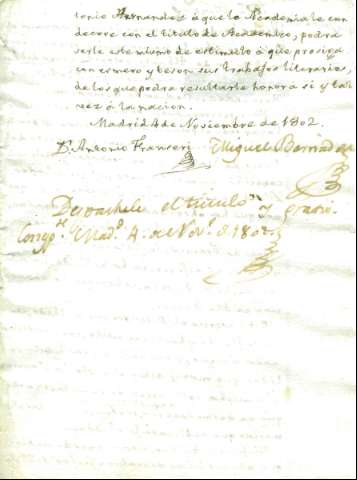 tonio Hernandez á que la Academia le con
decore con el titulo de Academico, podrá
serle este mismo de estimulo á que prosiga
con esmero y teson sus trabajos literarios,
de los que podrá resultarle honor á si y tal
vez á la nacion.
Madrid 4 de Noviembre de 1802.
D.r Antonio Franseri Miguel Barnades
Despachele el titulo y gracia.
Mad.d 4. de Nov.e d 1802